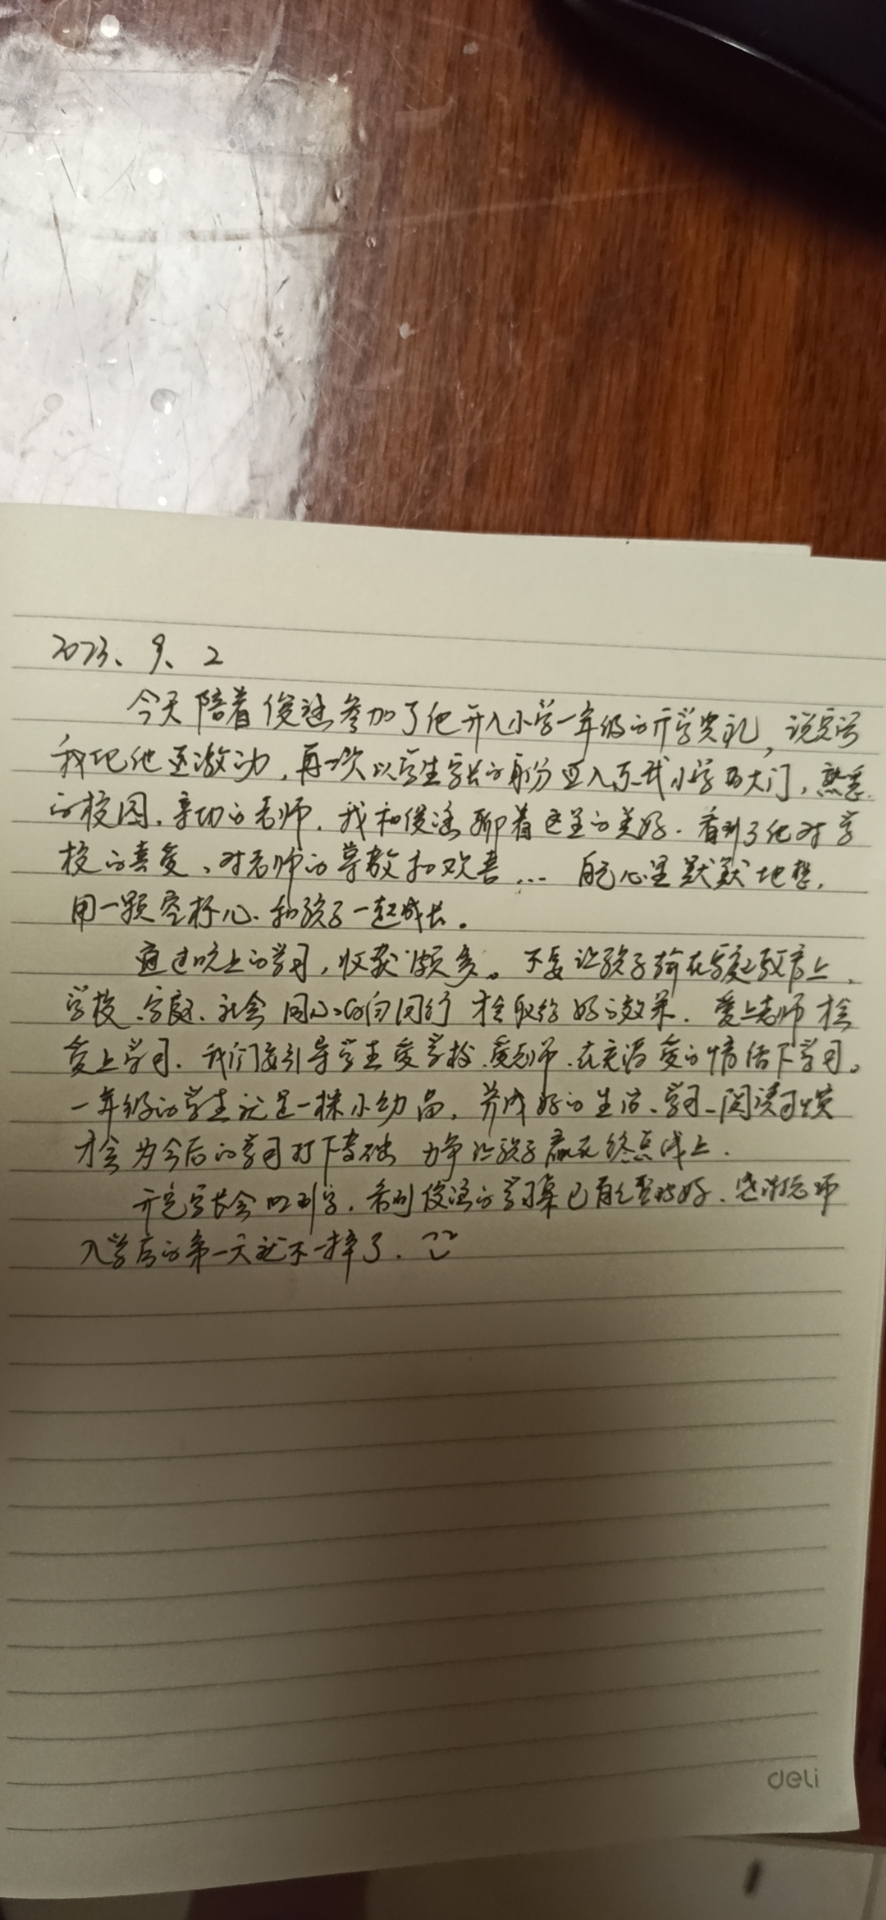 2023、9、2
今天陪着俊涵参加了他升入小学一年级的开学典礼，说实话
我比他还激动，再一次以学生家长的身份迈入小学的大门，熟悉
的校园、亲切的老师，我和俊涵聊着这里的美好，看到了他对学
校的喜爱、对老师的尊敬和欢喜… 自己心里默默地想，
用一颗空杯心，和孩子一起成长。
通过晚上的学习，收获颇多。不要让孩子输在家庭教育上，
学校、家庭、社会同心、同向同行才会取得好的效果，爱上老师才会
爱上学习，我们要引导学生爱学校、爱老师、在充满爱的情信下学习。
一年级的学生就是一株小幼苗，养成好的生活、学习、阅读习惯
才会为今后的学习打下基础 力争让孩子赢在终点线上。
开完家长会回到家，看到俊涵的学习桌已自己整理好，感谢老师
入学后的第一天就不一样了。
deli